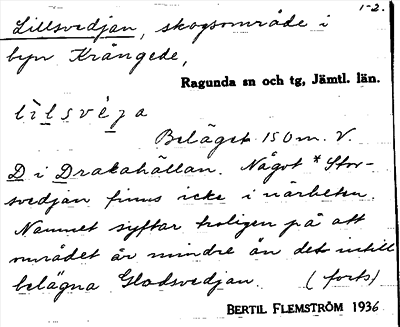 1-2.
Lillsvedjan, skogsområde i
byn Krångede,
Ragunda sn och tg, Jämtl. län.
Beläget 150 m. V.
D i Drakahällan. Något *Stor-
svedjan finns icke i närheten.
Namnet syftar troligen på att
området är mindre än det intill
belägna Glodsvedjan. (forts)
BERTIL FLEMSTRÖM 1936